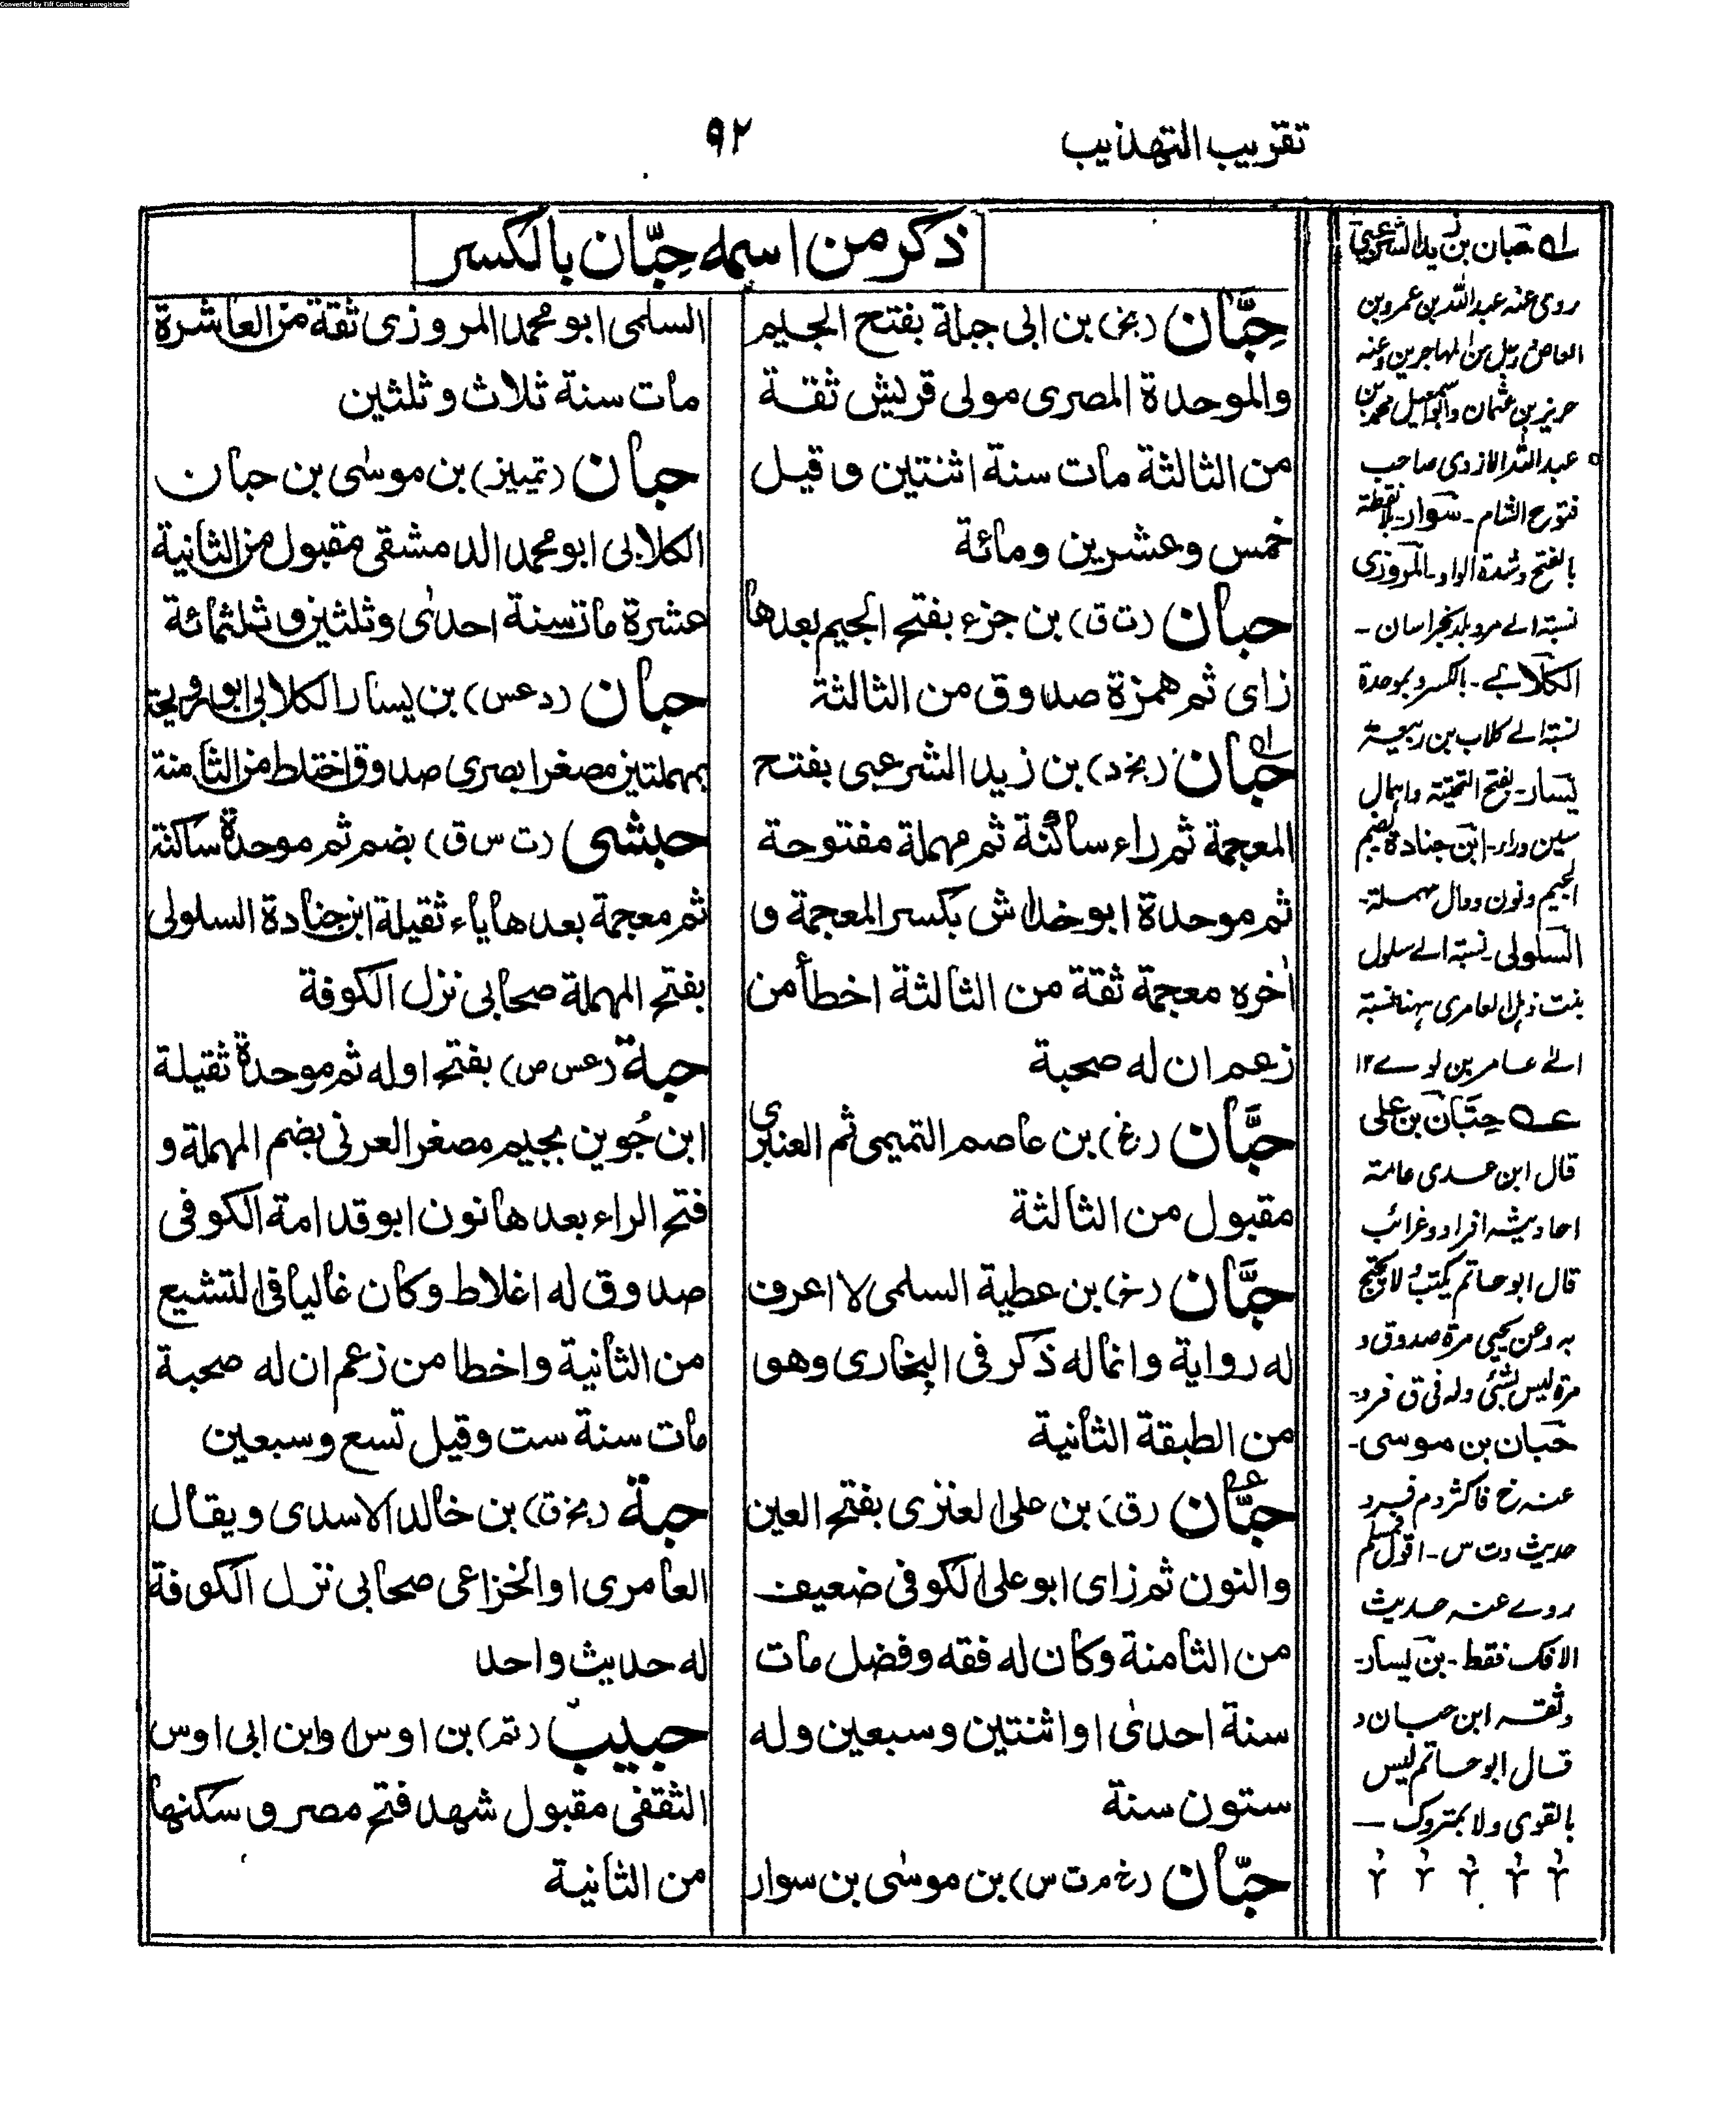 Converted by Tiff Combine - unregistered
تقريب التهذيب
٩٢
ذكر من اسمه حِبّان بالكسر
حِبَّان (بخ) بن ابى جبلة بفتح الجيم
والموحدة المصرى مولى قريش ثقة
من الثالثة مات سنة اثنتين وقيل
خمس وعشرين ومائة
حبان (ت ق) بن جزء بفتح الجيم بعدها
زاى ثم همزة صدوق من الثالثة
حبان (بخ د) بن زيد الشرعبى بفتح
المعجمة ثم راء ساكنة ثم مهملة مفتوحة
ثم موحدة ابو خداش بكسر المعجمة و
اٰخره معجمة ثقة من الثالثة اخطأ من
زعم ان له صحبة
حبَّان (بخ) بن عاصم التميمى ثم العنبرى
مقبول من الثالثة
حبَّان (خ) بن عطية السلمى لا اعرف
له رواية وانما له ذكر فى البخارى وهو
من الطبقة الثانية
حبَّان (ق) بن على العنزى بفتح العين
والنون ثم زاى ابو على الكوفى ضعيف
من الثامنة وكان له فقه وفضل مات
سنة احدىٰ او اثنتين وسبعين وله
ستون سنة
حبّان (خ م ت س) بن موسٰى بن سوار
السلمى ابو محمد المروزى ثقة من العاشرة
مات سنة ثلاث و ثلثين
حبان (تمييز) بن موسٰى بن حبان
الكلابى ابو محمد الدمشقى مقبول من الثانية
عشرة مات سنة احدىٰ وثلثين و ثلثمائة
حبان (د عس) بن يسار الكلابى ابو رويحة
بمهملتين مصغرا بصرى صدوق اختلط من الثامنة
حبشى (ت س ق) بضم ثم موحدة ساكنة
ثم معجمة بعدها ياء ثقيلة ابن جنادة السلولى
بفتح المهملة صحابى نزل الكوفة
حبة (عس ص) بفتح اوله ثم موحدة ثقيلة
ابن جُوين بجيم مصغر العرنى بضم المهملة و
فتح الراء بعدها نون ابو قدامة الكوفى
صدوق له اغلاط وكان غاليا فى التشيع
من الثانية واخطا من زعم ان له صحبة
مات سنة ست وقيل تسع وسبعين
حبة (بخ ق) بن خالد الاسدى ويقال
العامرى او الخزاعى صحابى نزل الكوفة
له حديث واحد
حبيب (تم) بن اوس او ابن ابى اوس
الثقفى مقبول شهد فتح مصر و سكنها
من الثانية
حبان بن زيد الشرعبى
روى عنه عبد الله بن عمرو بن
العاص ورجل من المهاجرين وعنه
حريز بن عثمان وابو اسمعيل محمد بن
عبد الله الازدى صاحب
فتوح الشام - سوار - بلا نقطة
بالفتح وشدة الواو - المروزى
نسبة الے مرو بلد بخراسان -
الكلابے - بالكسر وبموحدة
نسبة الے كلاب بن ربيعة
يسار - بفتح التحتية واهمال
سين وراء - ابن جنادة بضم
الجيم ونون ودال مهملة -
السلولى - نسبة الے سلول
بنت ذهل العامرى ههنا نسبة
الے عامر بن لوے ١٢
حبّان بن على
قال ابن عدى عامة
احاديثه افراد وغرائب
قال ابو حاتم يكتب لا يحتج
به وعن يحيى مرة صدوق و
مرة ليس بشئ وله فى ق فرد -
حبان بن موسى -
عنه خ فاكثر و م فرد
حديث و ت س - اقول مسلم
روے عنه حديث
الافك فقط - بن يسار -
وثقه ابن حبان و
قال ابو حاتم ليس
بالقوى ولا بمتروك —